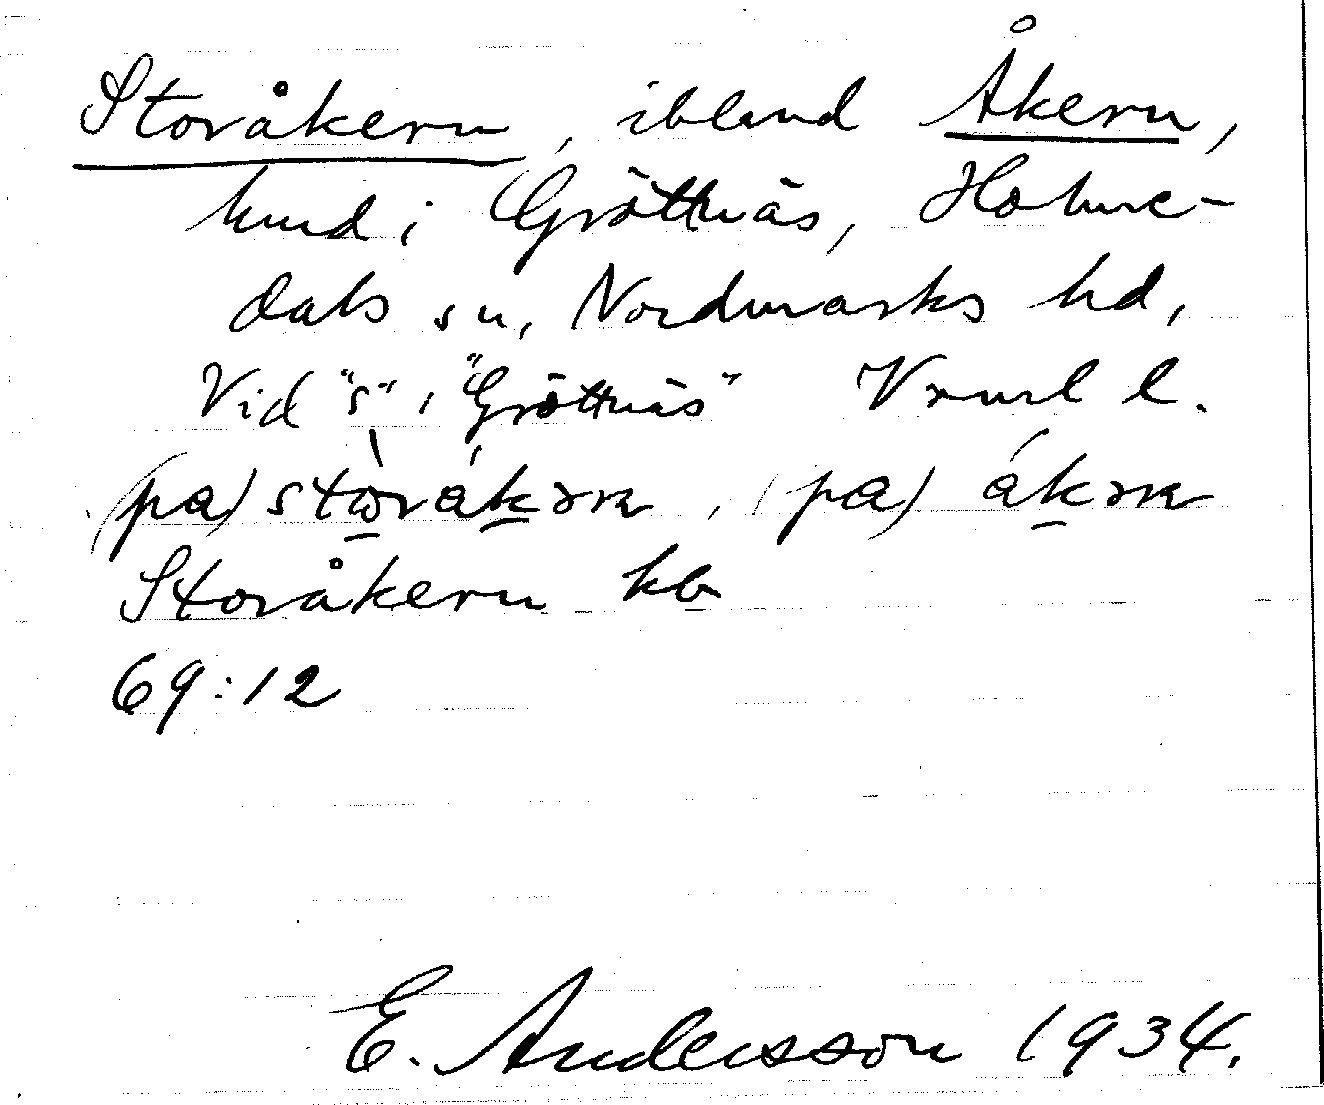 Storåkern, ibland Åkern,
hmd i Gröttnäs, Holme-
dals sn, Nordmarks hd,
Vid "s" i "Gröttnäs" Vrml l.
(pa) stòrákəɴ, (pa) ákəɴ
Storåkern kb
69:12
E. Andersson 1934.